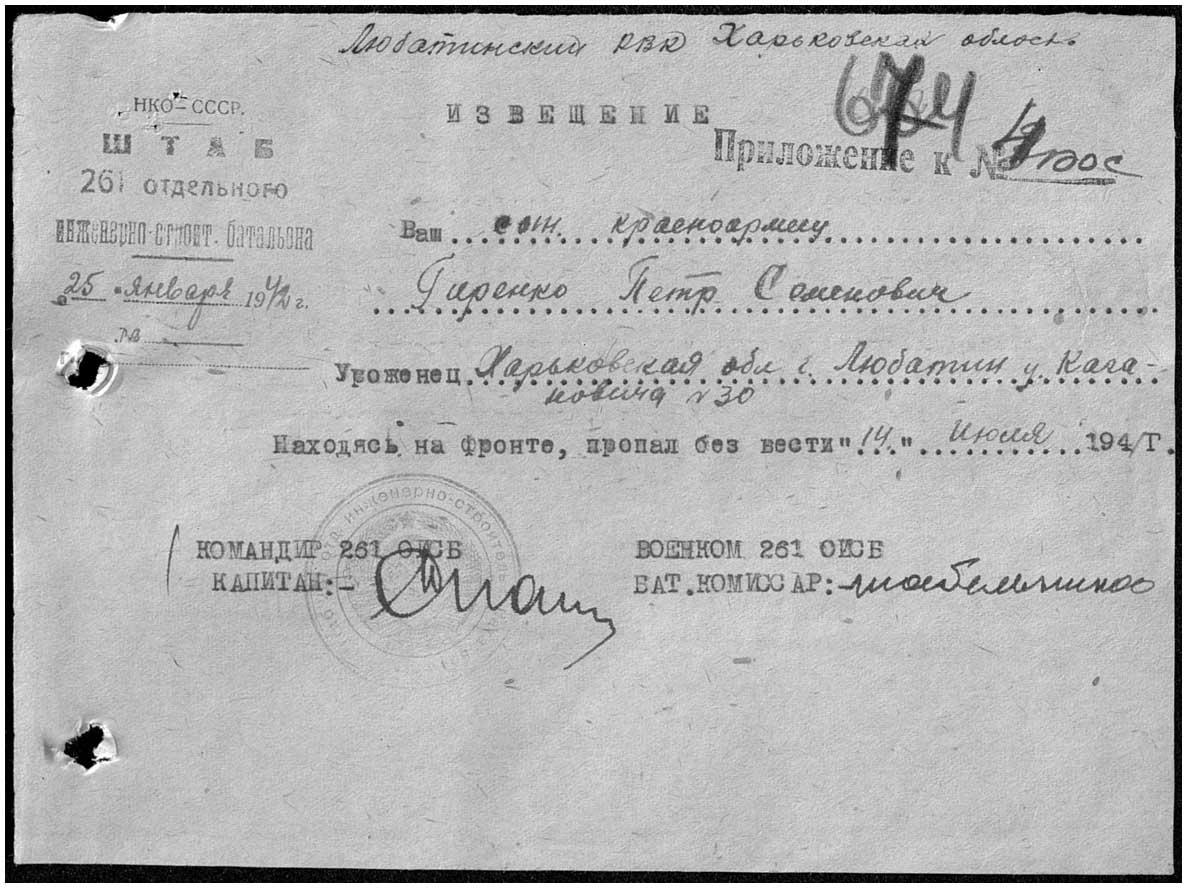 Любатинский РВК Харьковская область
НКО-СССР.
ШТАБ
261 отдельного
инженерно-строит. батальона
25 января 1942 г.
№
ИЗВЕЩЕНИЕ
674
Приложение к №
Ваш сын. красноармеец
Гиренко Петр Семенович
Уроженец Харьковская обл г. Любатин у. Кага-
новича № 30
Находясь на фронте, пропал без вести "14." Июля 1941Г.
КОМАНДИР 261 ОИСБ
КАПИТАН:-
ВОЕНКОМ 261 ОИСБ
БАТ.КОМИССАР:-
инженерно-строитель